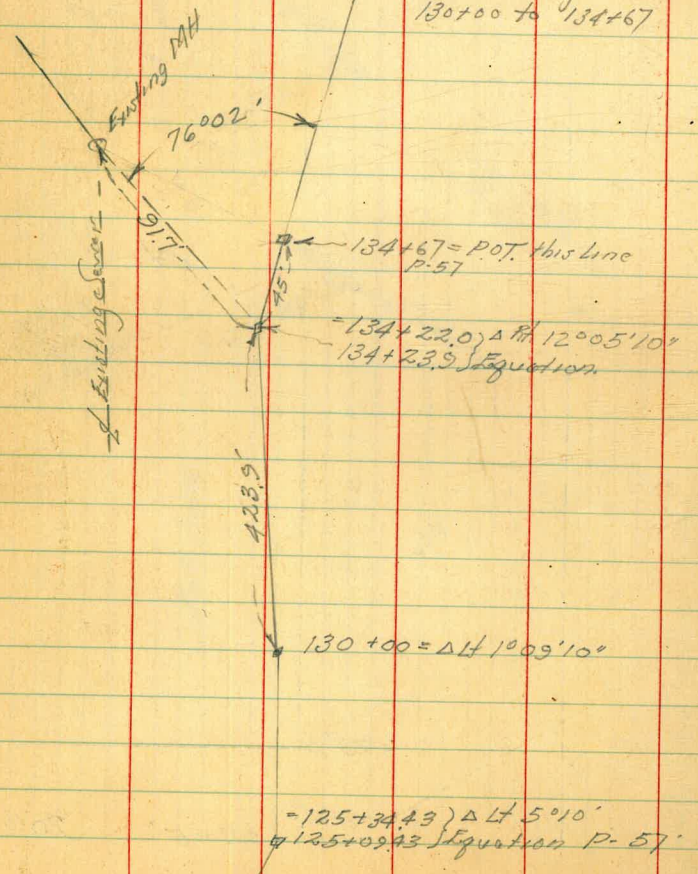 130+00 to 134+67
Existing MH
76°02'
91.7'
134+67 = P.O.T. this Line
P-57
45'
Existing Sewer
=134+22.0 } Δ Rt 12°05'10"
134+23.9 } Equation
423.9'
130+00 = Δ Lt 1°09'10"
=125+34.43 } Δ Lt 5°10'
125+09.43 } Equation P-57